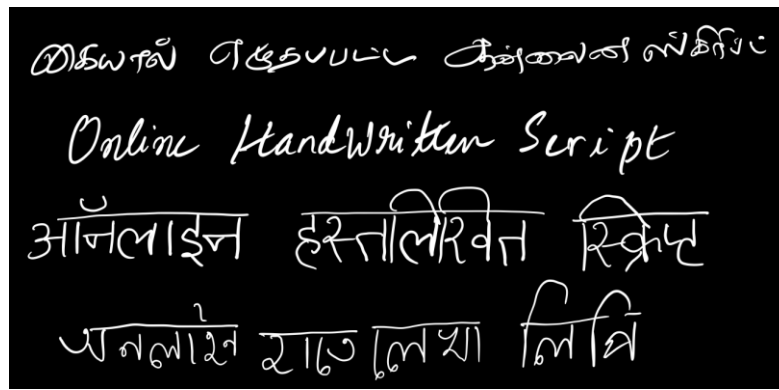 கையால் எழுதப்பட்ட ஆன்லைன் ஸ்கிரிப்ட்
Online Handwritten Script
ऑनलाइन हस्तलिखित स्क्रिप्ट
অনলাইন হাতে লেখা লিপি